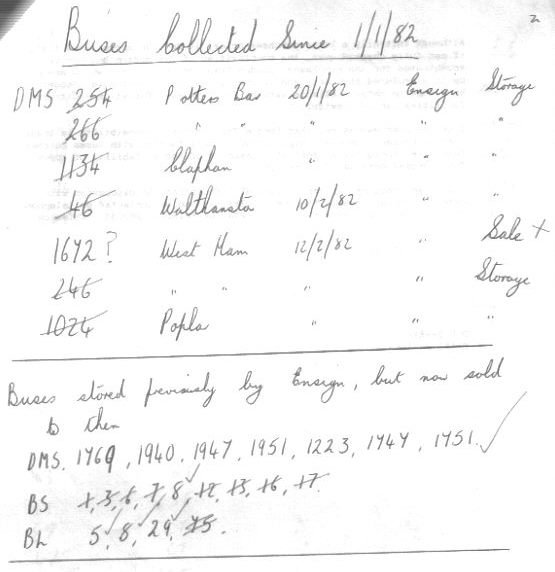 2
Buses Collected Since 1/1/82
DMS 254 Potters Bar 20/1/82 Ensign Storage
266 " " " " "
1134 Clapham " " "
46 Walthamstow 10/2/82 " "
1672? West Ham 12/2/82 " Sale +
246 " " " Storage
1024 Poplar " " "
Buses stored previously by Ensign, but now sold
to then
DMS. 1769, 1940, 1947, 1951, 1223, 1747, 1751. ✓
BS 1, 3, 6, 7, 8, 12, 13, 16, 17.
BL 5, 8, 29, 75.